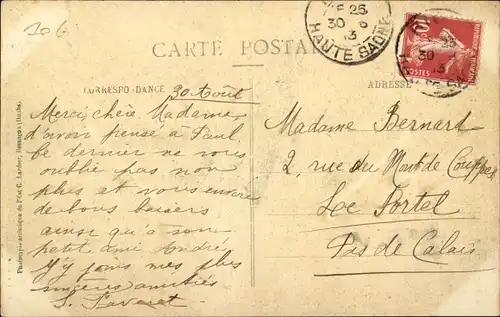 306
25
30 8
13
HAUTE SAONE
CARTE POSTALE
CORRESPONDANCE
ADRESSE
10
POSTES
30 Août
Merci, chère Madame
d'avoir pensé à Paul
ce dernier ne vous
oublie pas non
plus et vous envoie
de bons baisers
ainsi qu'à son
petit ami André
J'y joins mes plus
sincères amitiés
Madame Bernart
2, rue du Mont de Couppes
Le Portel
Pas de Calais
C. Lardier, Besançon (Doubs)